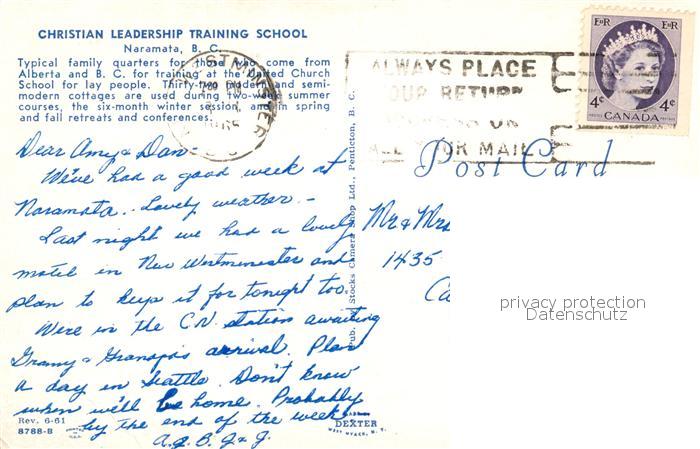 CHRISTIAN LEADERSHIP TRAINING SCHOOL
Naramata, B. C.
Typical family quarters for those who come from
Alberta and B. C. for training at the United Church
School for lay people. Thirty-two modern and semi-
modern cottages are used during two-week summer
courses, the six-month winter session, and in spring
and fall retreats and conferences.
Dear Amy & Dan -
We've had a good week at
Naramata. Lovely weather. -
Last night we had a lovely
motel in New Westminester and
plan to keep it for tonight too.
We're in the C.N. station awaiting
Granny & Grampa's arrival. Plan
a day in Seattle. Don't know
when we'll be home. Probably
by the end of the week.
Rev. 6-61
8788-B
DEXTER
WEST NYACK, N. Y.
Pub. Stocks Camera Shop Ltd., Penticton, B. C.
ALWAYS PLACE
OUR RETURN
ON
ALL YOUR MAIL
E II R
E II R
4¢
4¢
POSTES
CANADA
POSTAGE
Post Card
Mr & Mrs
1435
Ca
privacy protection
Datenschutz